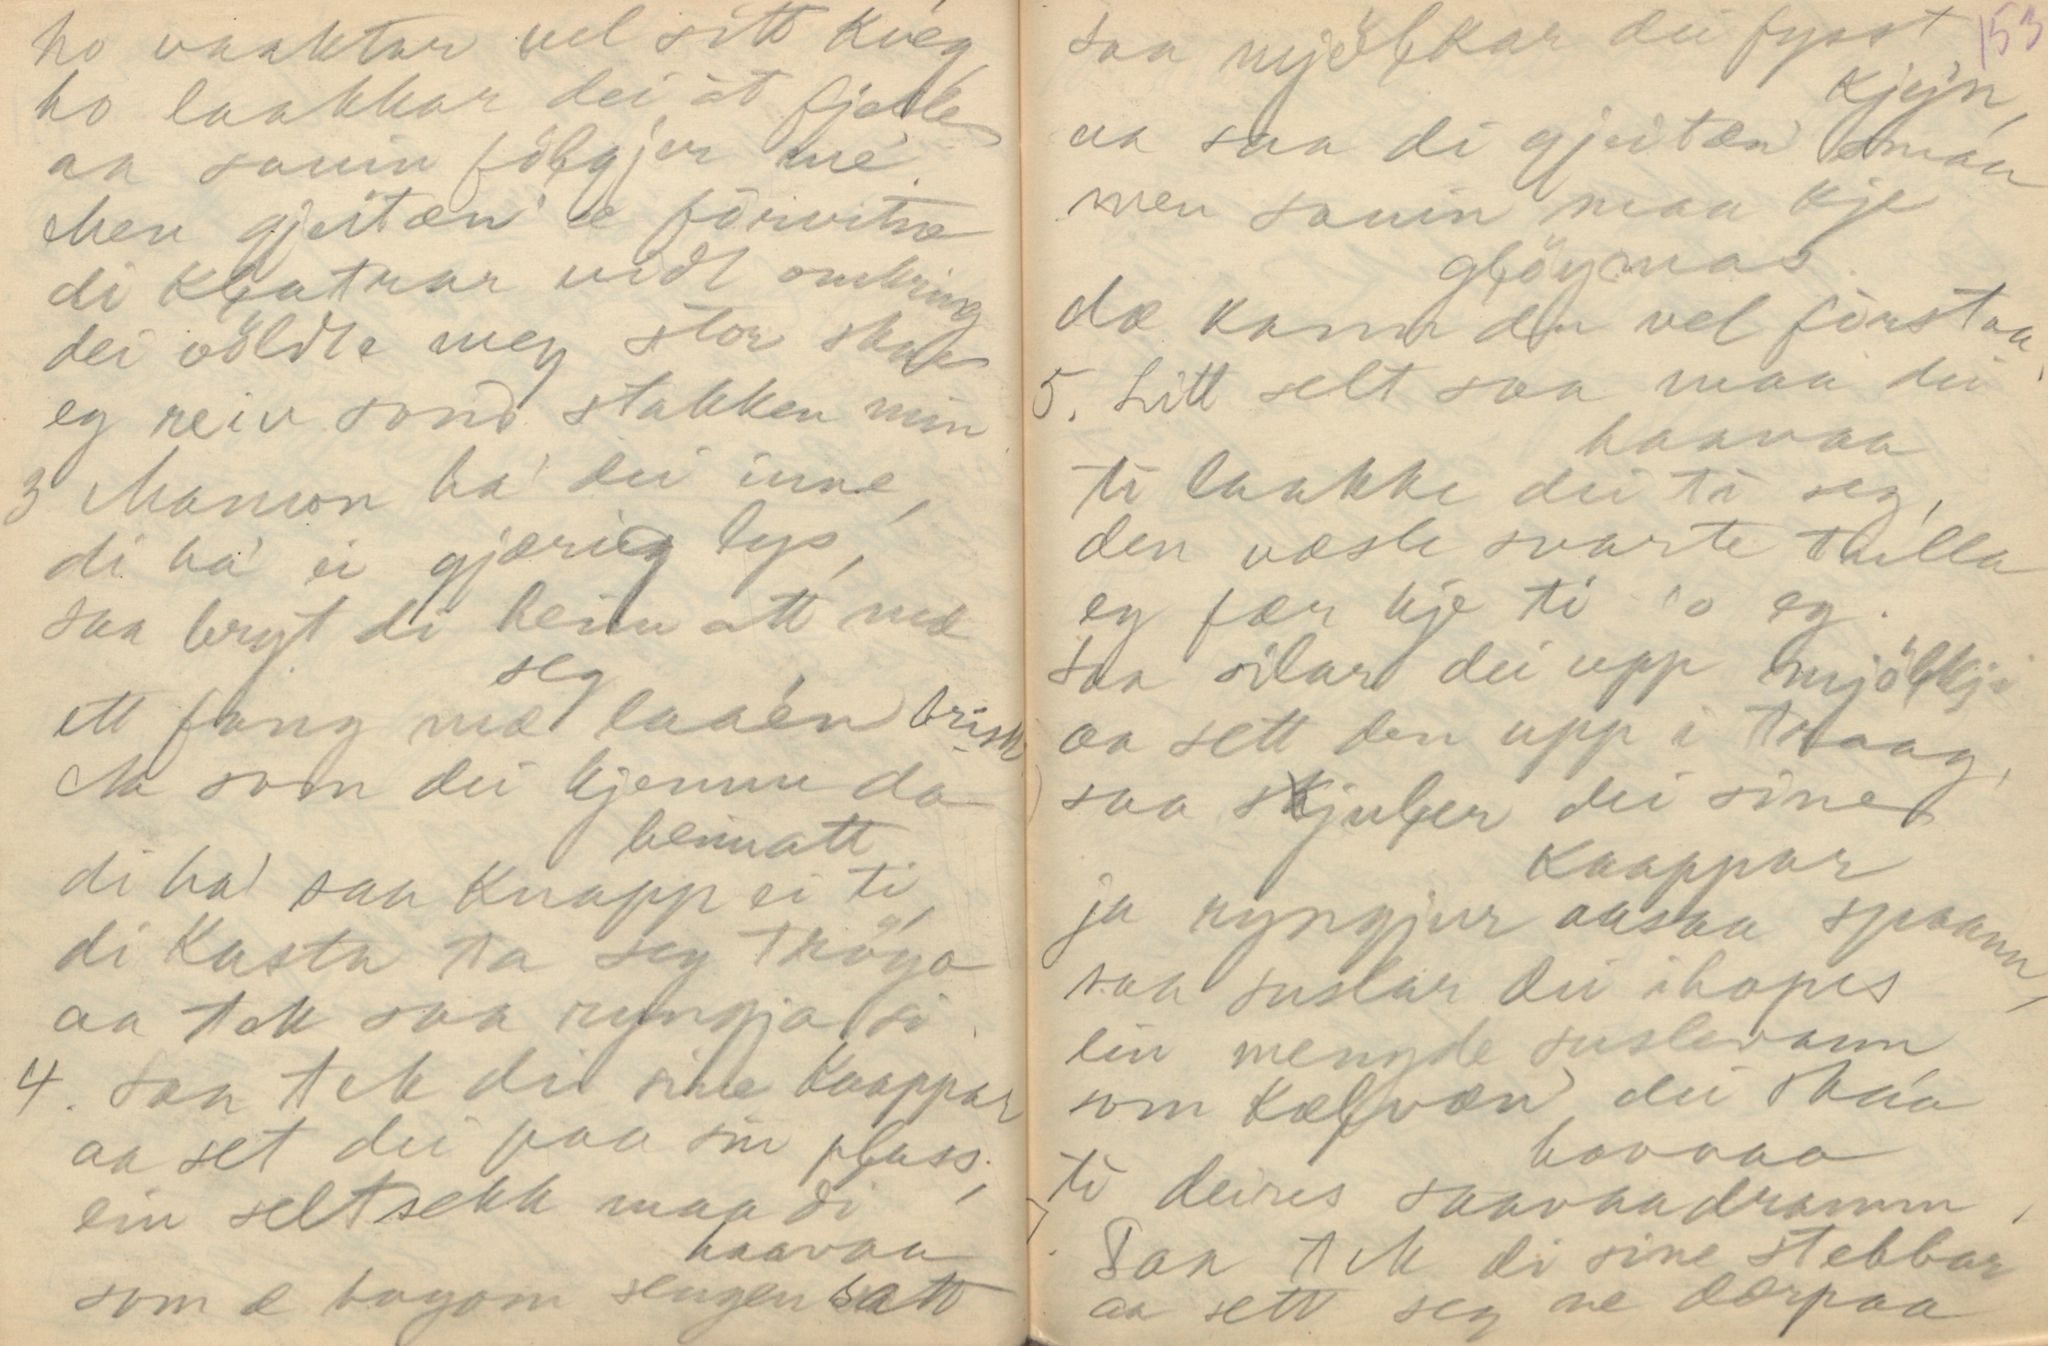 ho vaaktar vel sitt kveg
ho laakkar dei åt fjelle
aa sauin fölgjer mé.
Men gjeitæn' æ fórvitne
di kljatrar vidt omkring
dei völdte meg stor skae
eg reiv sond stakken min
3 Manson ha' dei inne,
di ha' ei gjærieg lys,
saa bryt di heim att mæ
seg
ett fang mæ laaén brisk
Na som dei kjemme da
heimatt
di ha' saa knapp ei ti,
di kasta ta seg tröyo
aa tek saa ryngjo si.
4. Saa tek di sine kaappar
aa set dei paa sin plass,
ein seltsekk maa di
haavaa
som æ bogom sengen satt
153
saa mjölkar dei fysst
kjýn,
aa saa di gjeitæn smaa
men sauin maa kje
glöymas
dæ kann du vel fórstaa,
5. Litt selt saa maa dei
haavaa
ti laakke dei ti seg,
den væsle svarte tailla
eg fær kje ti 'o eg.
Saa silar dei upp mjölkji
aa sett den upp i traag,
saa skjuler dei sine
kaappar
ja ryngjur aasaa spaann,
saa suslar dei ihopes
ein mengde suslevann
som kælvæn' dei skaa
havaa
ti deires saavaadramm,
Saa tek di sine stebbar
aa sett seg ne dærpaa